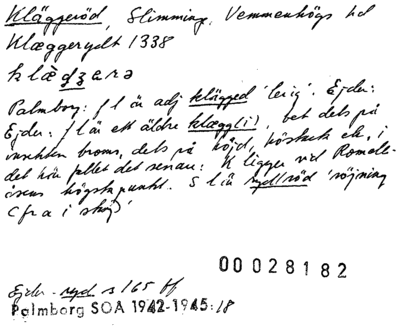 Kläggeröd, Slimminge, Vemmenhögs hd
Klæggerydt 1338
klæ̀gʒərə
Palmborg: fl är adj klägged 'lerig'. Ejder:
Ejder: fl är ett äldre klægg(i), bet dels på
insekten broms, dels på höjd, höstack etc, i
det här fallet det senare: K ligger vid Romele-
åsens högsta punkt. S l är ryd/röd 'röjning
(fra i skog)'
00028182
Ejder - ryd s 165 ff
Palmborg SOA 1942-1945:18